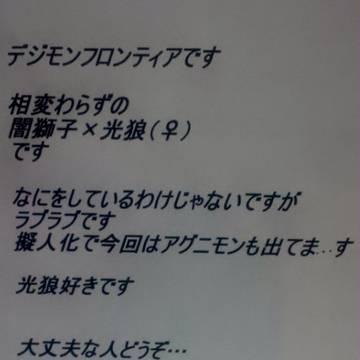 デジモンフロンティアです
相変わらずの
闇獅子×光狼(♀)
です
なにをしているわけじゃないですが
ラブラブです
擬人化で今回はアグニモンも出てま…す
光狼好きです
大丈夫な人どうぞ…